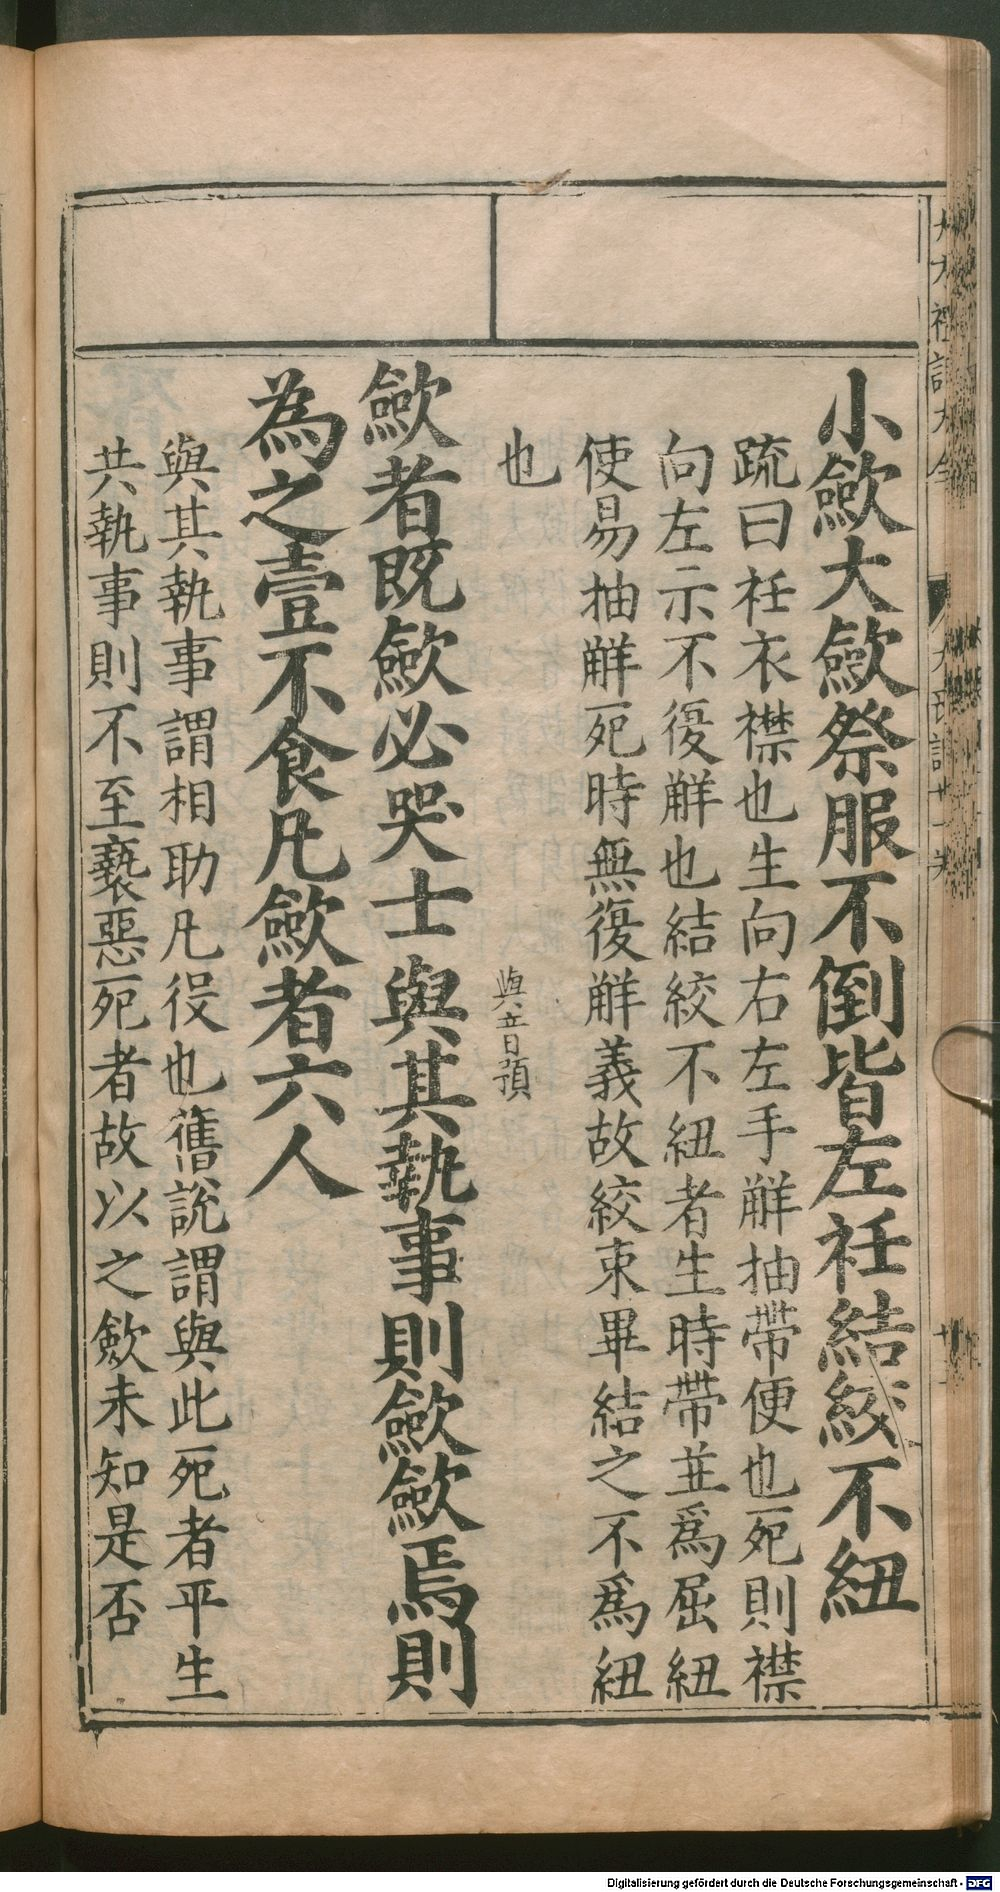 小歛大歛祭服不倒皆左衽結絞不紐
疏曰衽衣襟也生向右左手觧抽帶便也死則襟
向左示不復觧也結絞不紐者生時帶並爲屈紐
使易抽觧死時無復觧義故絞束畢結之不爲紐
也
與音預
歛者既歛必哭士與其執事則歛歛焉則
為之壹不食凡歛者六人
與其執事謂相助凡役也舊説謂與此死者平生
共執事則不至褻惡死者故以之歛未知是否
Digitalisierung gefördert durch die Deutsche Forschungsgemeinschaft - DFG